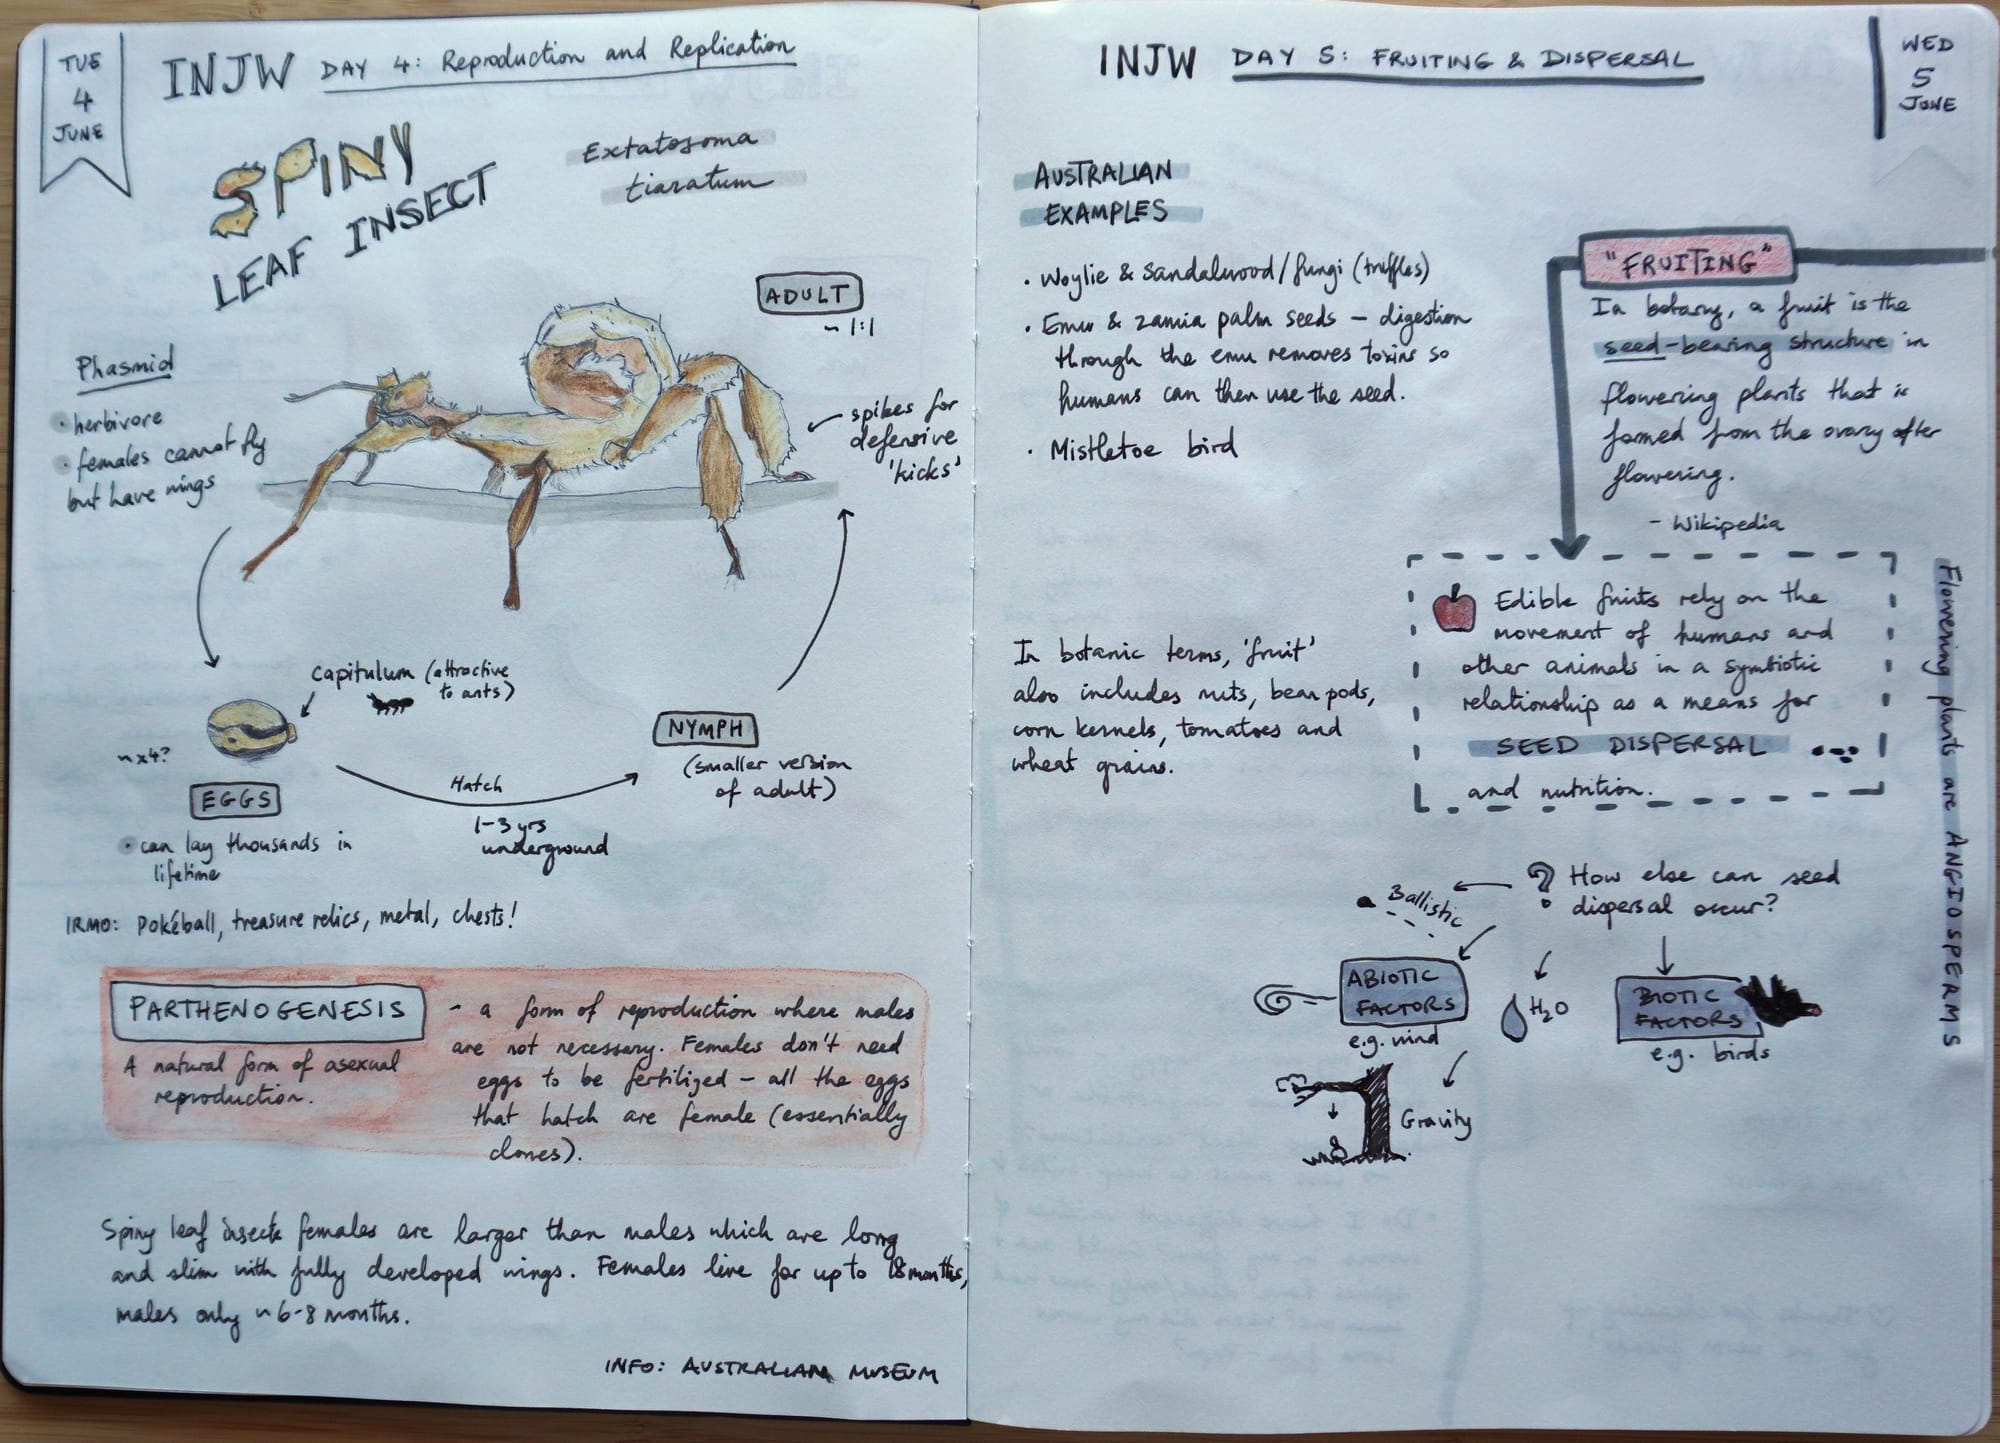 TUE
4
JUNE
INJW DAY 4: Reproduction and Replication
SPINY
LEAF INSECT
Extatosoma
tiaratum
ADULT
~ 1:1
Phasmid
• herbivore
• females cannot fly
but have wings
spikes for
defensive
'kicks'
capitulum (attractive
to ants)
~ x4?
EGGS
• can lay thousands in
lifetime
Hatch
1-3 yrs
underground
NYMPH
(smaller version
of adult)
IRMO: Pokéball, treasure relics, metal, chests!
PARTHENOGENESIS
A natural form of asexual
reproduction.
- a form of reproduction where males
are not necessary. Females don't need
eggs to be fertilized - all the eggs
that hatch are female (essentially
clones).
Spiny leaf insect females are larger than males which are long
and slim with fully developed wings. Females live for up to 18 months,
males only ~ 6-8 months.
INFO: AUSTRALIAN MUSEUM
INJW DAY 5: FRUITING & DISPERSAL
WED
5
JUNE
AUSTRALIAN
EXAMPLES
• Woylie & sandalwood/fungi (truffles)
• Emu & zamia palm seeds - digestion
through the emu removes toxins so
humans can then use the seed.
• Mistletoe bird
"FRUITING"
In botany, a fruit is the
seed-bearing structure in
flowering plants that is
formed from the ovary after
flowering.
- Wikipedia
Edible fruits rely on the
movement of humans and
other animals in a symbiotic
relationship as a means for
SEED DISPERSAL
and nutrition.
Flowering plants are ANGIOSPERMS
In botanic terms, 'fruit'
also includes nuts, bean pods,
corn kernels, tomatoes and
wheat grains.
? How else can seed
dispersal occur?
Ballistic
ABIOTIC
FACTORS
e.g. wind
H2O
BIOTIC
FACTORS
e.g. birds
Gravity